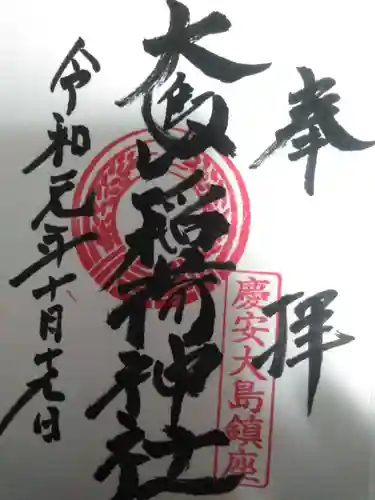 奉拝
慶安大島鎮座
大島稲荷神社
令和元年十月十七日